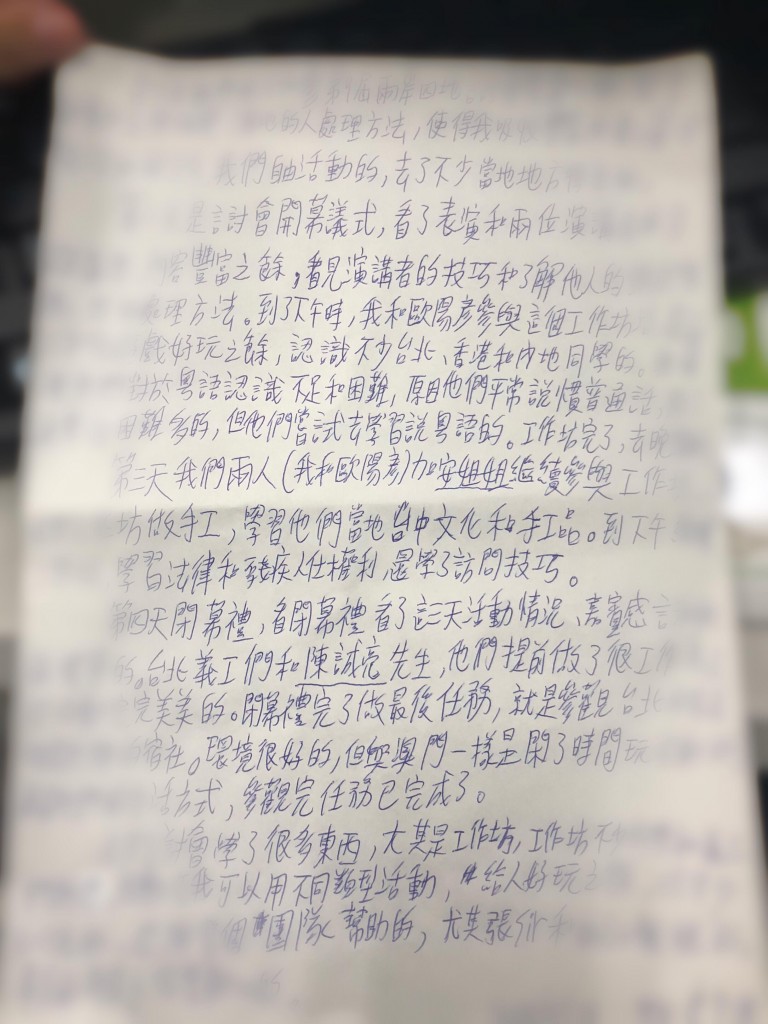 的人處理方法，使得我
我們自由活動的，去了不少當地地方
是討會開幕議式，看了表演和兩位演
豐富之餘，看見演講者的技巧和了解他人的
處理方法。到了下午時，我和歐陽彥參與這個工作坊
戲好玩之餘，認識不少台北、香港和內地同學的。
對於粵語認識不足和困難，原因他們平常說慣普通話，
困難多的，但他們嘗試去學習說粵語的。工作坊完了，去晚
第三天我們兩人(我和歐陽彥)加安姐姐繼續參與工作
坊做手工，學習他們當地台中文化和手工品。到下午
學習法律和殘疾人仕權利，還學了訪問技巧。
第四天閉幕禮，看閉幕禮看了這三天活動情況、嘉賓感言
的。台北義工們和陳誠亮先生，他們提前做了很工作
完美美的。閉幕禮完了做最後任務，就是參觀台北
宿社。環境很好的，但與澳門一樣是閑了時間玩
活方式，參觀完任務已完成了。
會學了很多東西，尤其是工作坊，工作坊不
我可以用不同類型活動，給人好玩之
個團隊幫助的，尤其張